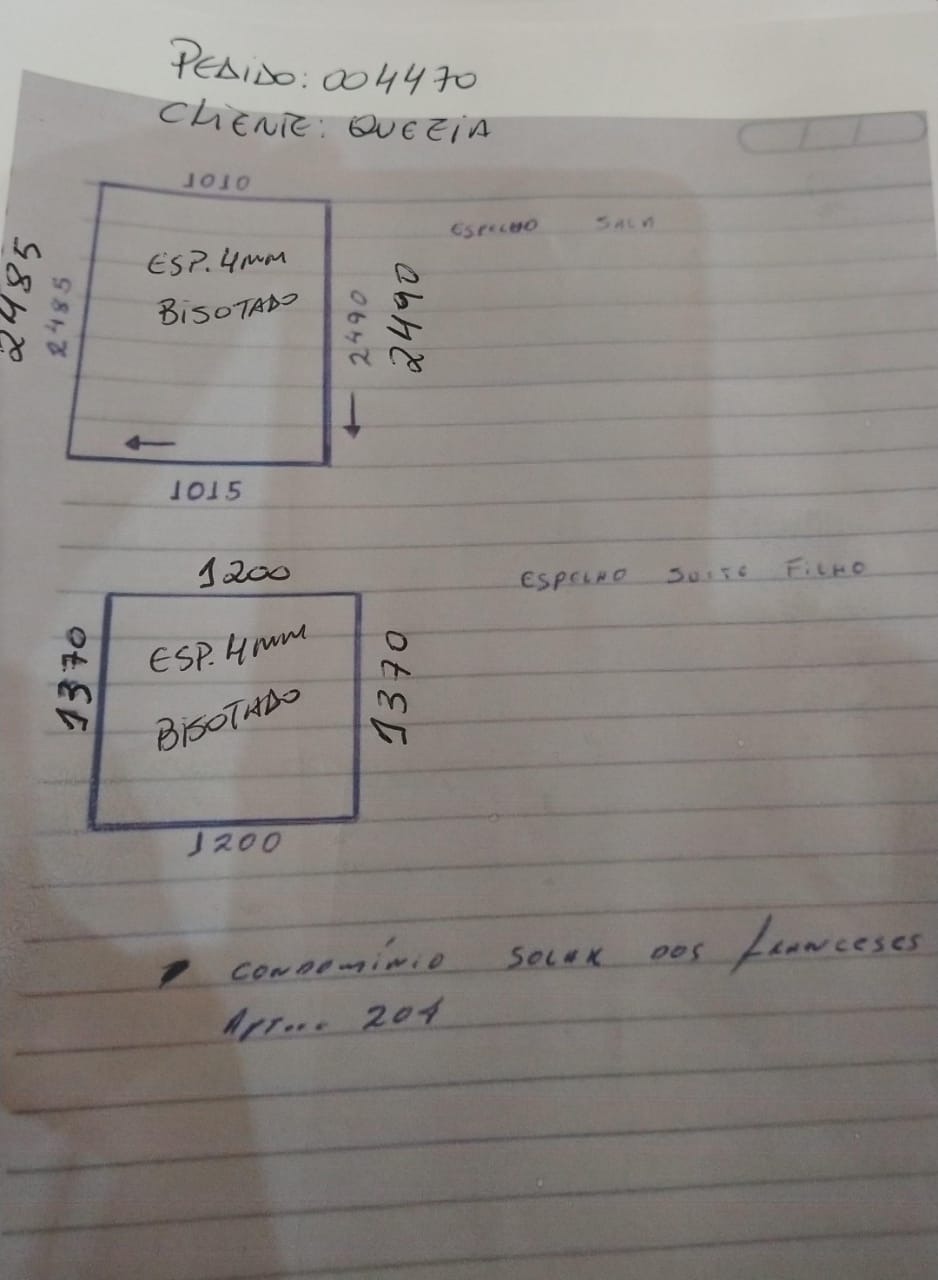 PEDIDO: 004470
CLIENTE: QUEZIA
1010
ESPELHO SALA
ESP. 4MM
BISOTADO
2485
2485
2490
2490
1015
1200
ESPELHO SUITE FILHO
ESP. 4MM
BISOTADO
1370
1370
1200
CONDOMÍNIO SOLAR DOS FRANCESES
APT... 201